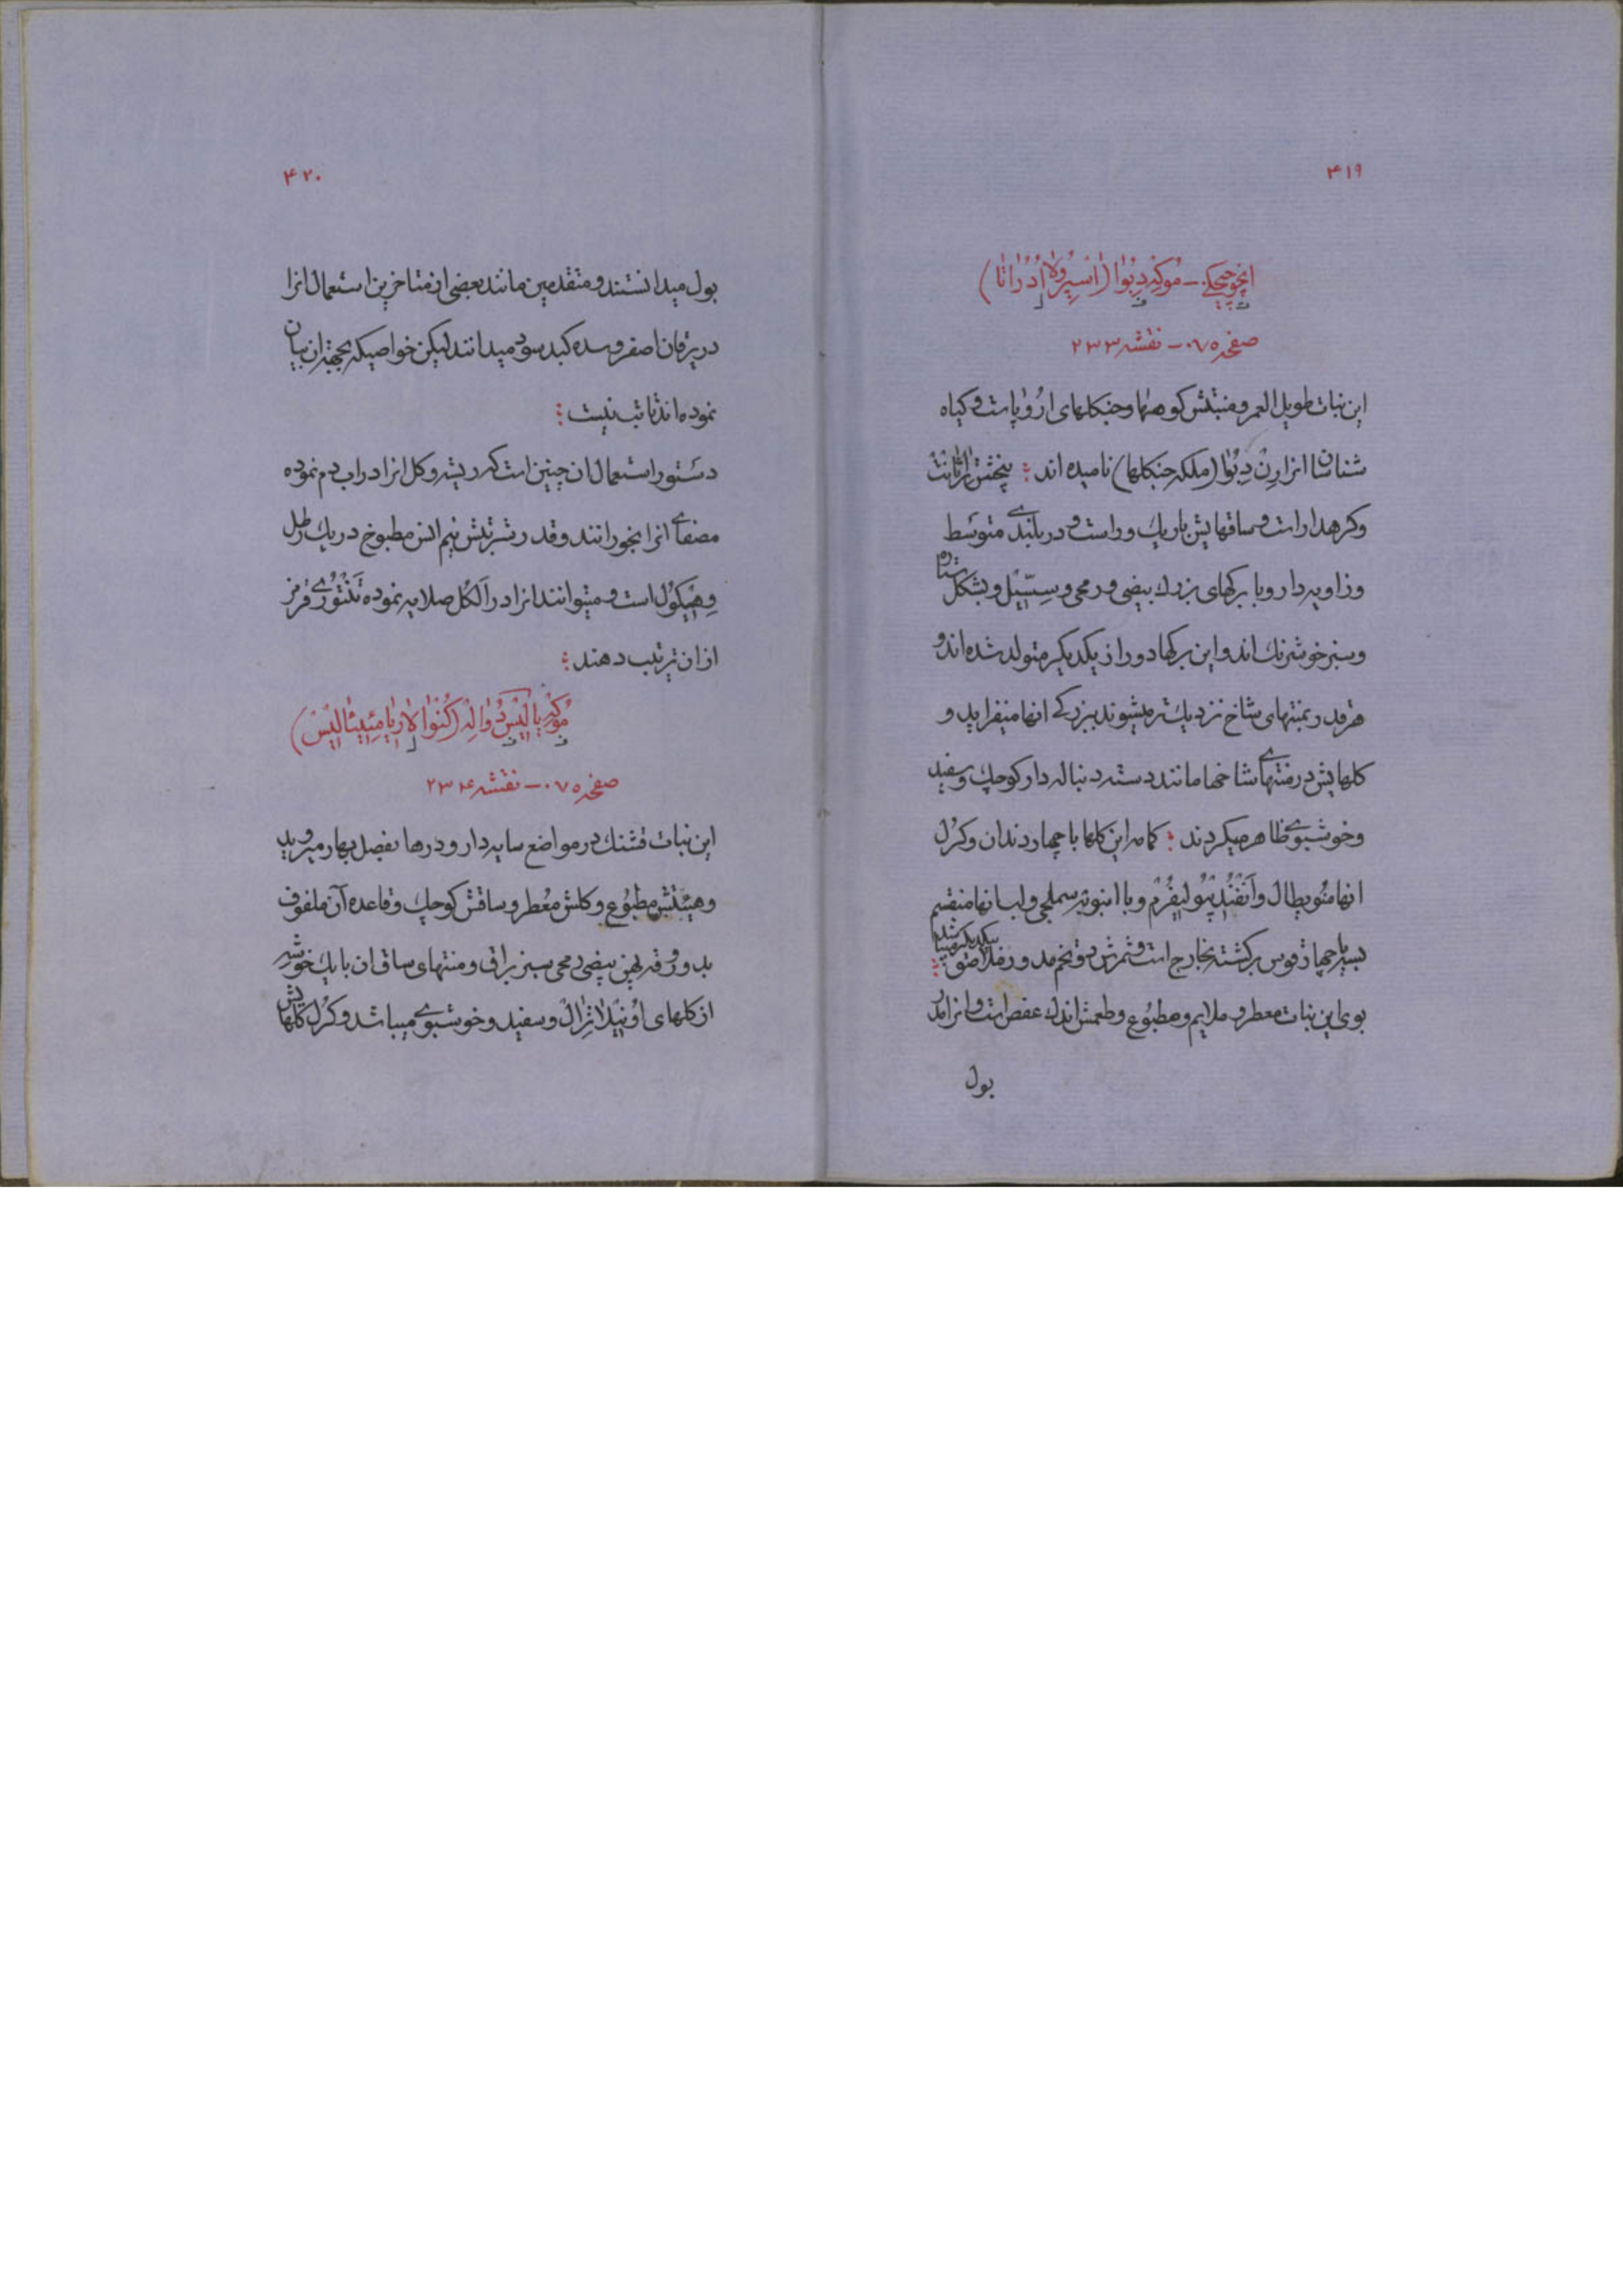 ۴۱۹
اینچوچیچکی - موگه دبوا (اسپرولا ادراتا)
صفحه ۷۵۰ - نقشه ۲۳۳
این نبات طویل العمر و منبتش کوهها و جنکلهای اروپاست و کیاه
شناسان انرا رن دبوا (ملکه جنکلها) نامیده اند : بیخش تراثانت
و کرهدار است و ساقهایش باریک و راست و در بلندی متوسط
و زاویه دار و با برکهای بزرک بیضی و رمحی و سسیل و بشکل ستاره
و سبز خوشرنک اند و این برکها دور از یکدیکر متولد شده اند و
هر قدر بمنتهای شاخ نزدیک تر میشوند ببزرکی انها میفزاید و
کلهایش در منتهای شاخها مانند دسته دنباله دار کوچک و سفید
و خوشبوی ظاهر میکردند : کاسه این کلها با چهار دندان و کرل
انها منوپطال و انفندیبولیفرم و با انبوبه سملجی و لب انها منقسم
بسه یا چهار قوس برکشته بخارج است و ثمرش دو تخم مدور ملاصق بیکدیکر میباشد :
بوی این نبات معطر و ملایم و مطبوع و طعمش اندک عفص است و انرا مدر
بول
۴۲۰
بول میدانستند و متقدمین مانند بعضی از متاخرین استعمال انرا
در یرقان اصفر و سده کبد سودمید انند لیکن خواصیکه بجهة ان بیان
نموده اند ثابت نیست :
دستور استعمال ان چنین است که ریشه و کل انرا در اب دم نموده
مصفای انرا بخورانند و قدر شربتش نیم انس مطبوخ در یک رطل
وهیکول است و میتوانند انرا در الکل صلایه نموده تنتوری قرمز
ازان ترتیب دهند :
موگه یا لیس دواله (کنوالاریا میئیالیس)
صفحه ۷۵۰ - نقشه ۲۳۴
این نبات قشنک در مواضع سایه دار و درها بفصل بهار میروید
و هیئتش مطبوع و کلش معطر و ساقش کوچک و قاعده آن ملفوف
بدو ورقه پهن بیضی رمحی سبز براق و منتهای ساق ان با یک خوشه
از کلهای اونیلاترال و سفید و خوشبوی میباشد و کرل کلهایش